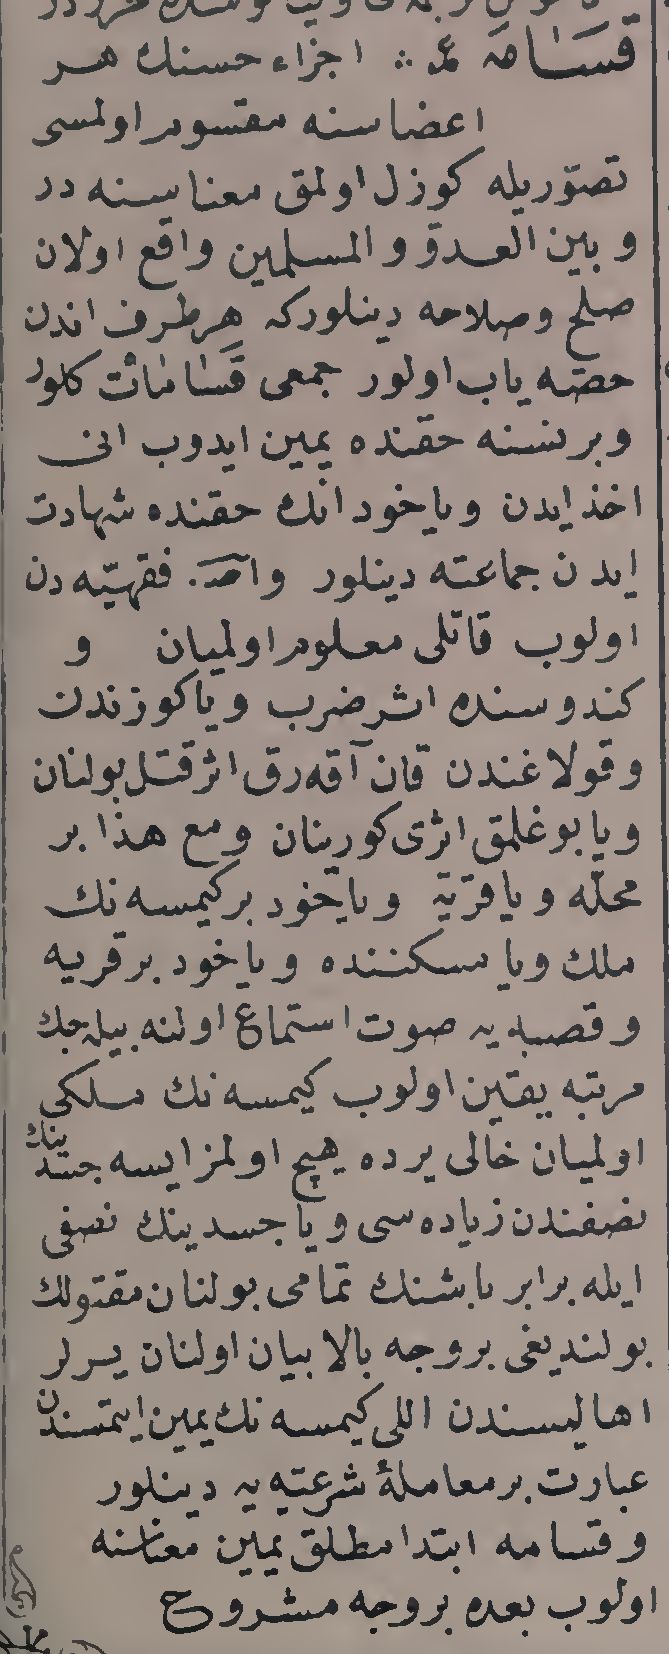 قسامه ع . اجزاء حسنك هر
اعضاسنه مقسوم اولمسى
تصوّريله كوزل اولمق معناسنه در
و بين العدوّ و المسلمين واقع اولان
صلح و صلاحه دينلور كه هر طرف اندن
حصّه ياب اولور جمعى قَسَامَات كلور
و بر نسنه حقنده يمين ايدوب انى
اخذ ايدن و ياخود انك حقنده شهادت
ايدن جماعته دينلور و اصط. فقهيّه دن
اولوب قاتلى معلوم اولميان و
كندوسنده اثر ضرب و يا كوزندن
و قولاغندن قان آقه رق اثر قتل بولنان
و يا بوغلمق اثرى كورينان و مع هذا بر
محلّه و يا قريه و ياخود بر كيمسه نك
ملك و يا مسكننده و ياخود بر قريه
و قصبه يه صوت استماع اولنه بيله جك
مرتبه يقين اولوب كيمسه نك ملكى
اولميان خالى يرده هيچ اولمز ايسه جسدينك
نصفندن زياده سى و يا جسدينك نصفى
ايله برابر باشنك تمامى بولنان مقتولك
بولنديغى بر وجه بالا بيان اولنان يرلر
اهاليسندن اللى كيمسه نك يمين ايتمسندن
عبارت بر معاملهٔ شرعيّه يه دينلور
و قسامه ابتدا مطلق يمين معناسنه
اولوب بعده بر وجه مشروح